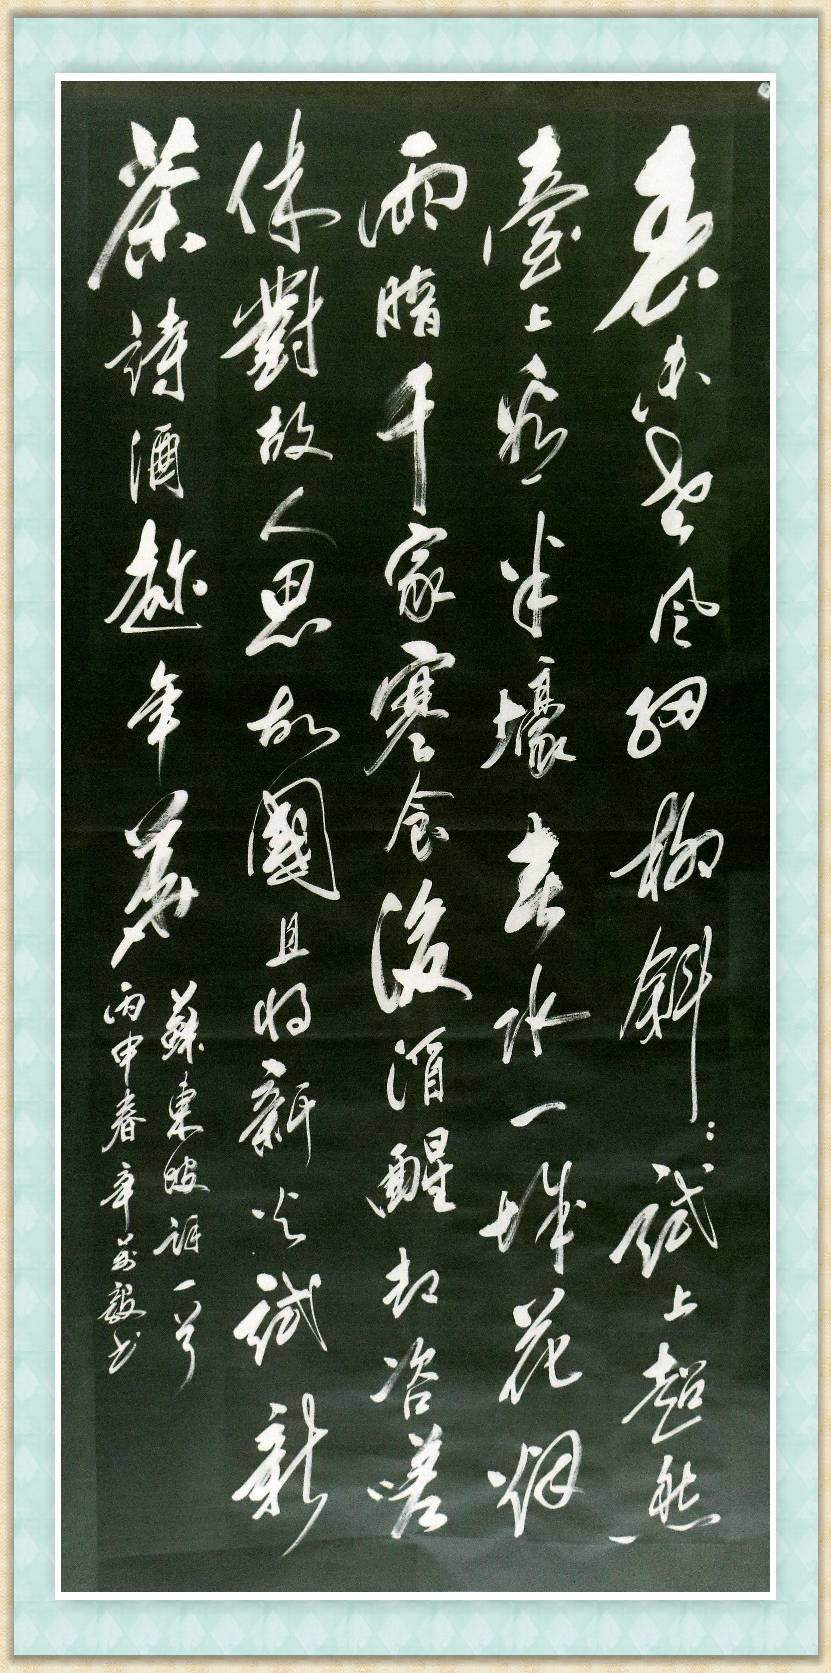 春未老風細柳斜:試上超然
臺上看半壕春水一城花烟
雨暗千家寒食後酒醒却咨嗟
休對故人思故國且將新火試新
茶詩酒趂年華
蘇東坡詞一首
丙申春辛毅书